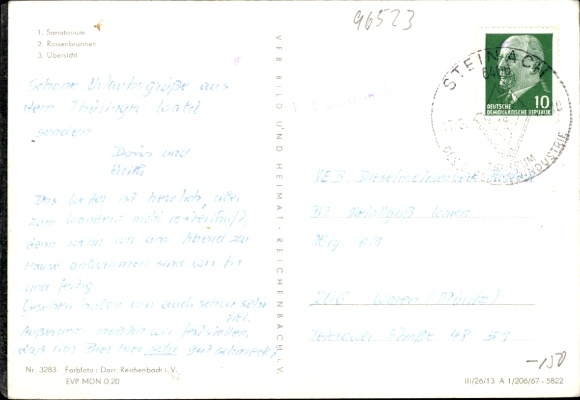 96523
1. Sanatorium
2. Rossenbrunnen
3. Übersicht
Schöne Urlaubsgrüße aus
dem Thüringer Wald
senden
Doris und
Das Wetter ist herrlich, aber
zum Wandern nicht vorteilhaft,
denn wenn wir am Abend zu
Hause ankommen sind wir fix
und fertig.
Gesehen haben wir auch schon sehr
viel.
Außerdem mußten wir feststellen,
daß das Bier hier sehr gut schmeckt.
Nr. 3283 Farbfoto: Darr, Reichenbach i. V.
EVP MDN 0.20
VEB BILD UND HEIMAT · REICHENBACH i. V.
STEINACH
DEUTSCHE
DEMOKRATISCHE REPUBLIK
10
VEB Dieselmotorenwerk
BT Metallguß Waren
206 Waren (Müritz)
Teterower Straße 48 51
-150
III/26/13 A 1/206/67 - 5822